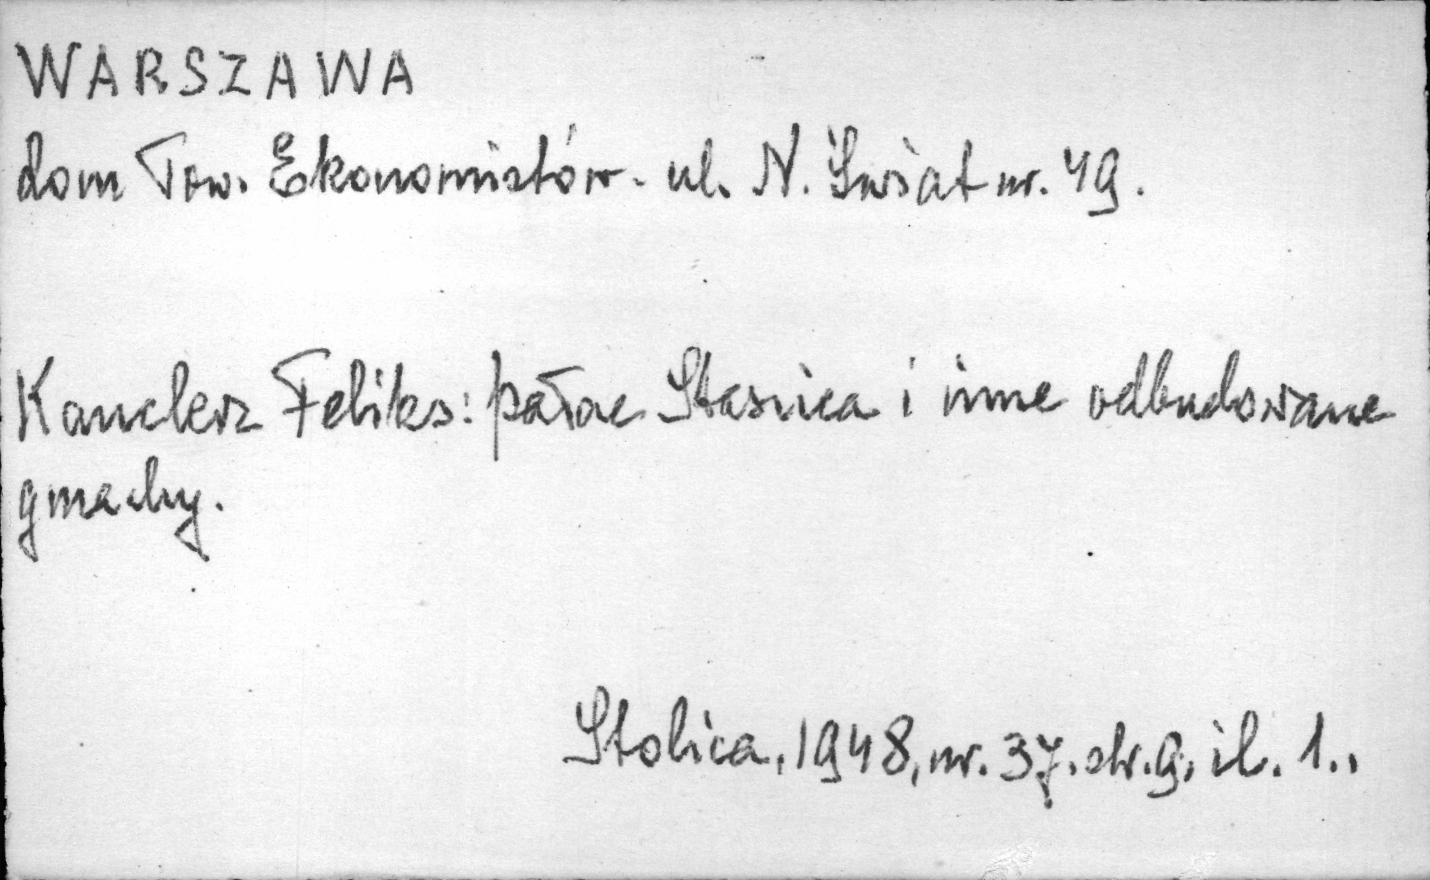 WARSZAWA
dom Tow. Ekonomistów. ul. N. Świat nr. 49.
Kanclerz Feliks: pałac Staszica i inne odbudowane
gmachy.
Stolica, 1948, nr. 37. str. 9, il. 1.,